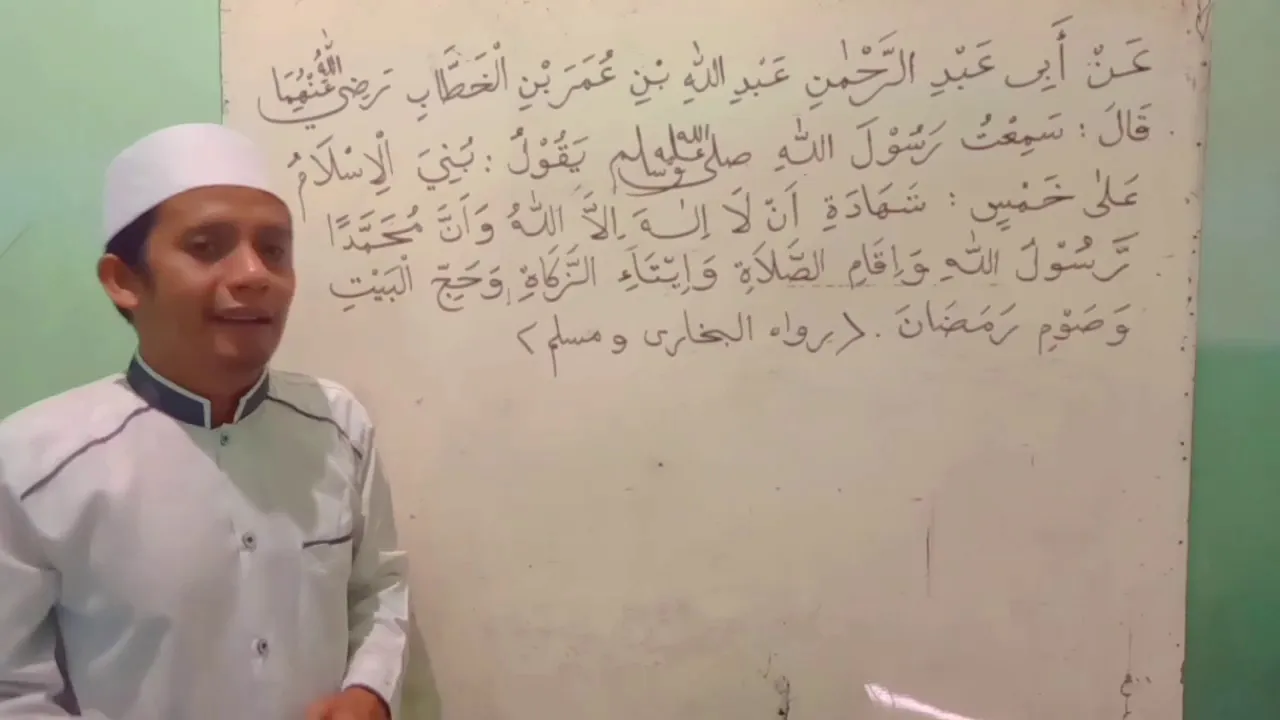 عَنْ أَبِى عَبْدِ الرَّحْمٰنِ عَبْدِ اللّٰهِ بْنِ عُمَرَ بْنِ الْخَطَّابِ رَضِيَ اللّٰهُ عَنْهُمَا
قَالَ : سَمِعْتُ رَسُوْلَ اللّٰهِ صلى الله عليه وسلم يَقُوْلُ : بُنِيَ الْاِسْلَامُ
عَلٰى خَمْسٍ : شَهَادَةِ اَنْ لَا اِلٰهَ اِلاَّ اللّٰهُ وَاَنَّ مُحَمَّدًا
رَّسُوْلُ اللّٰهِ وَاِقَامِ الصَّلَاةِ وَاِيْتَاءِ الزَّكَاةِ وَحَجِّ الْبَيْتِ
وَصَوْمِ رَمَضَانَ . <رواه البخارى و مسلم>